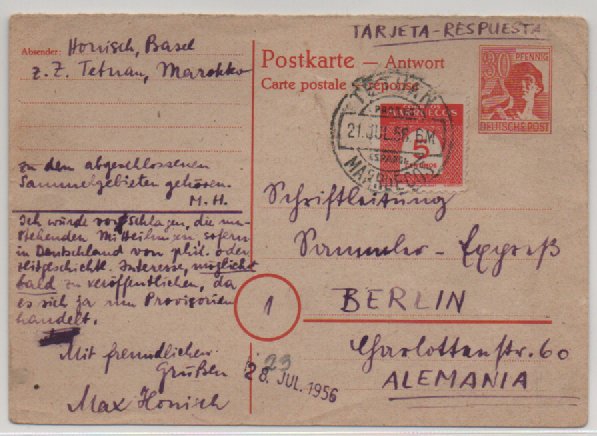 TARJETA-RESPUESTA
Absender: Honisch, Basel
z. Z. Tetuan, Marokko
Postkarte — Antwort
Carte postale — réponse
30 PFENNIG
DEUTSCHE POST
TETUAN
21. JUL. 56. 6M
MARRUECOS
MARRUECOS
5
zu dem abgeschlossenen
Sammelgebieten gehören.
M. H.
Ich würde vorschlagen, die
stehenden Mitteilungen, sofern
in Deutschland von phil. oder
zeitgeschichtl. Interesse, möglichst
bald zu veröffentlichen, da
es sich ja um Provisorien
handelt.
Mit freundlichen
Grüßen
Max Honisch
Schriftleitung
Sammler-Expreß
1
BERLIN
Charlottenstr. 60
ALEMANIA
23
28. JUL. 1956